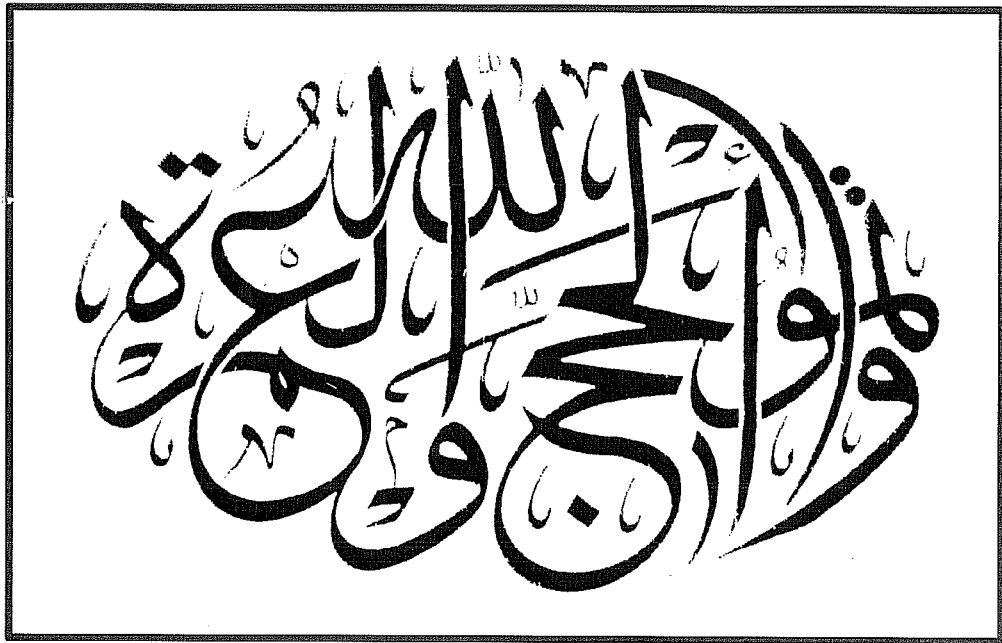 وَأَتِمُّوا الْحَجَّ وَالْعُمْرَةَ لِلَّهِ